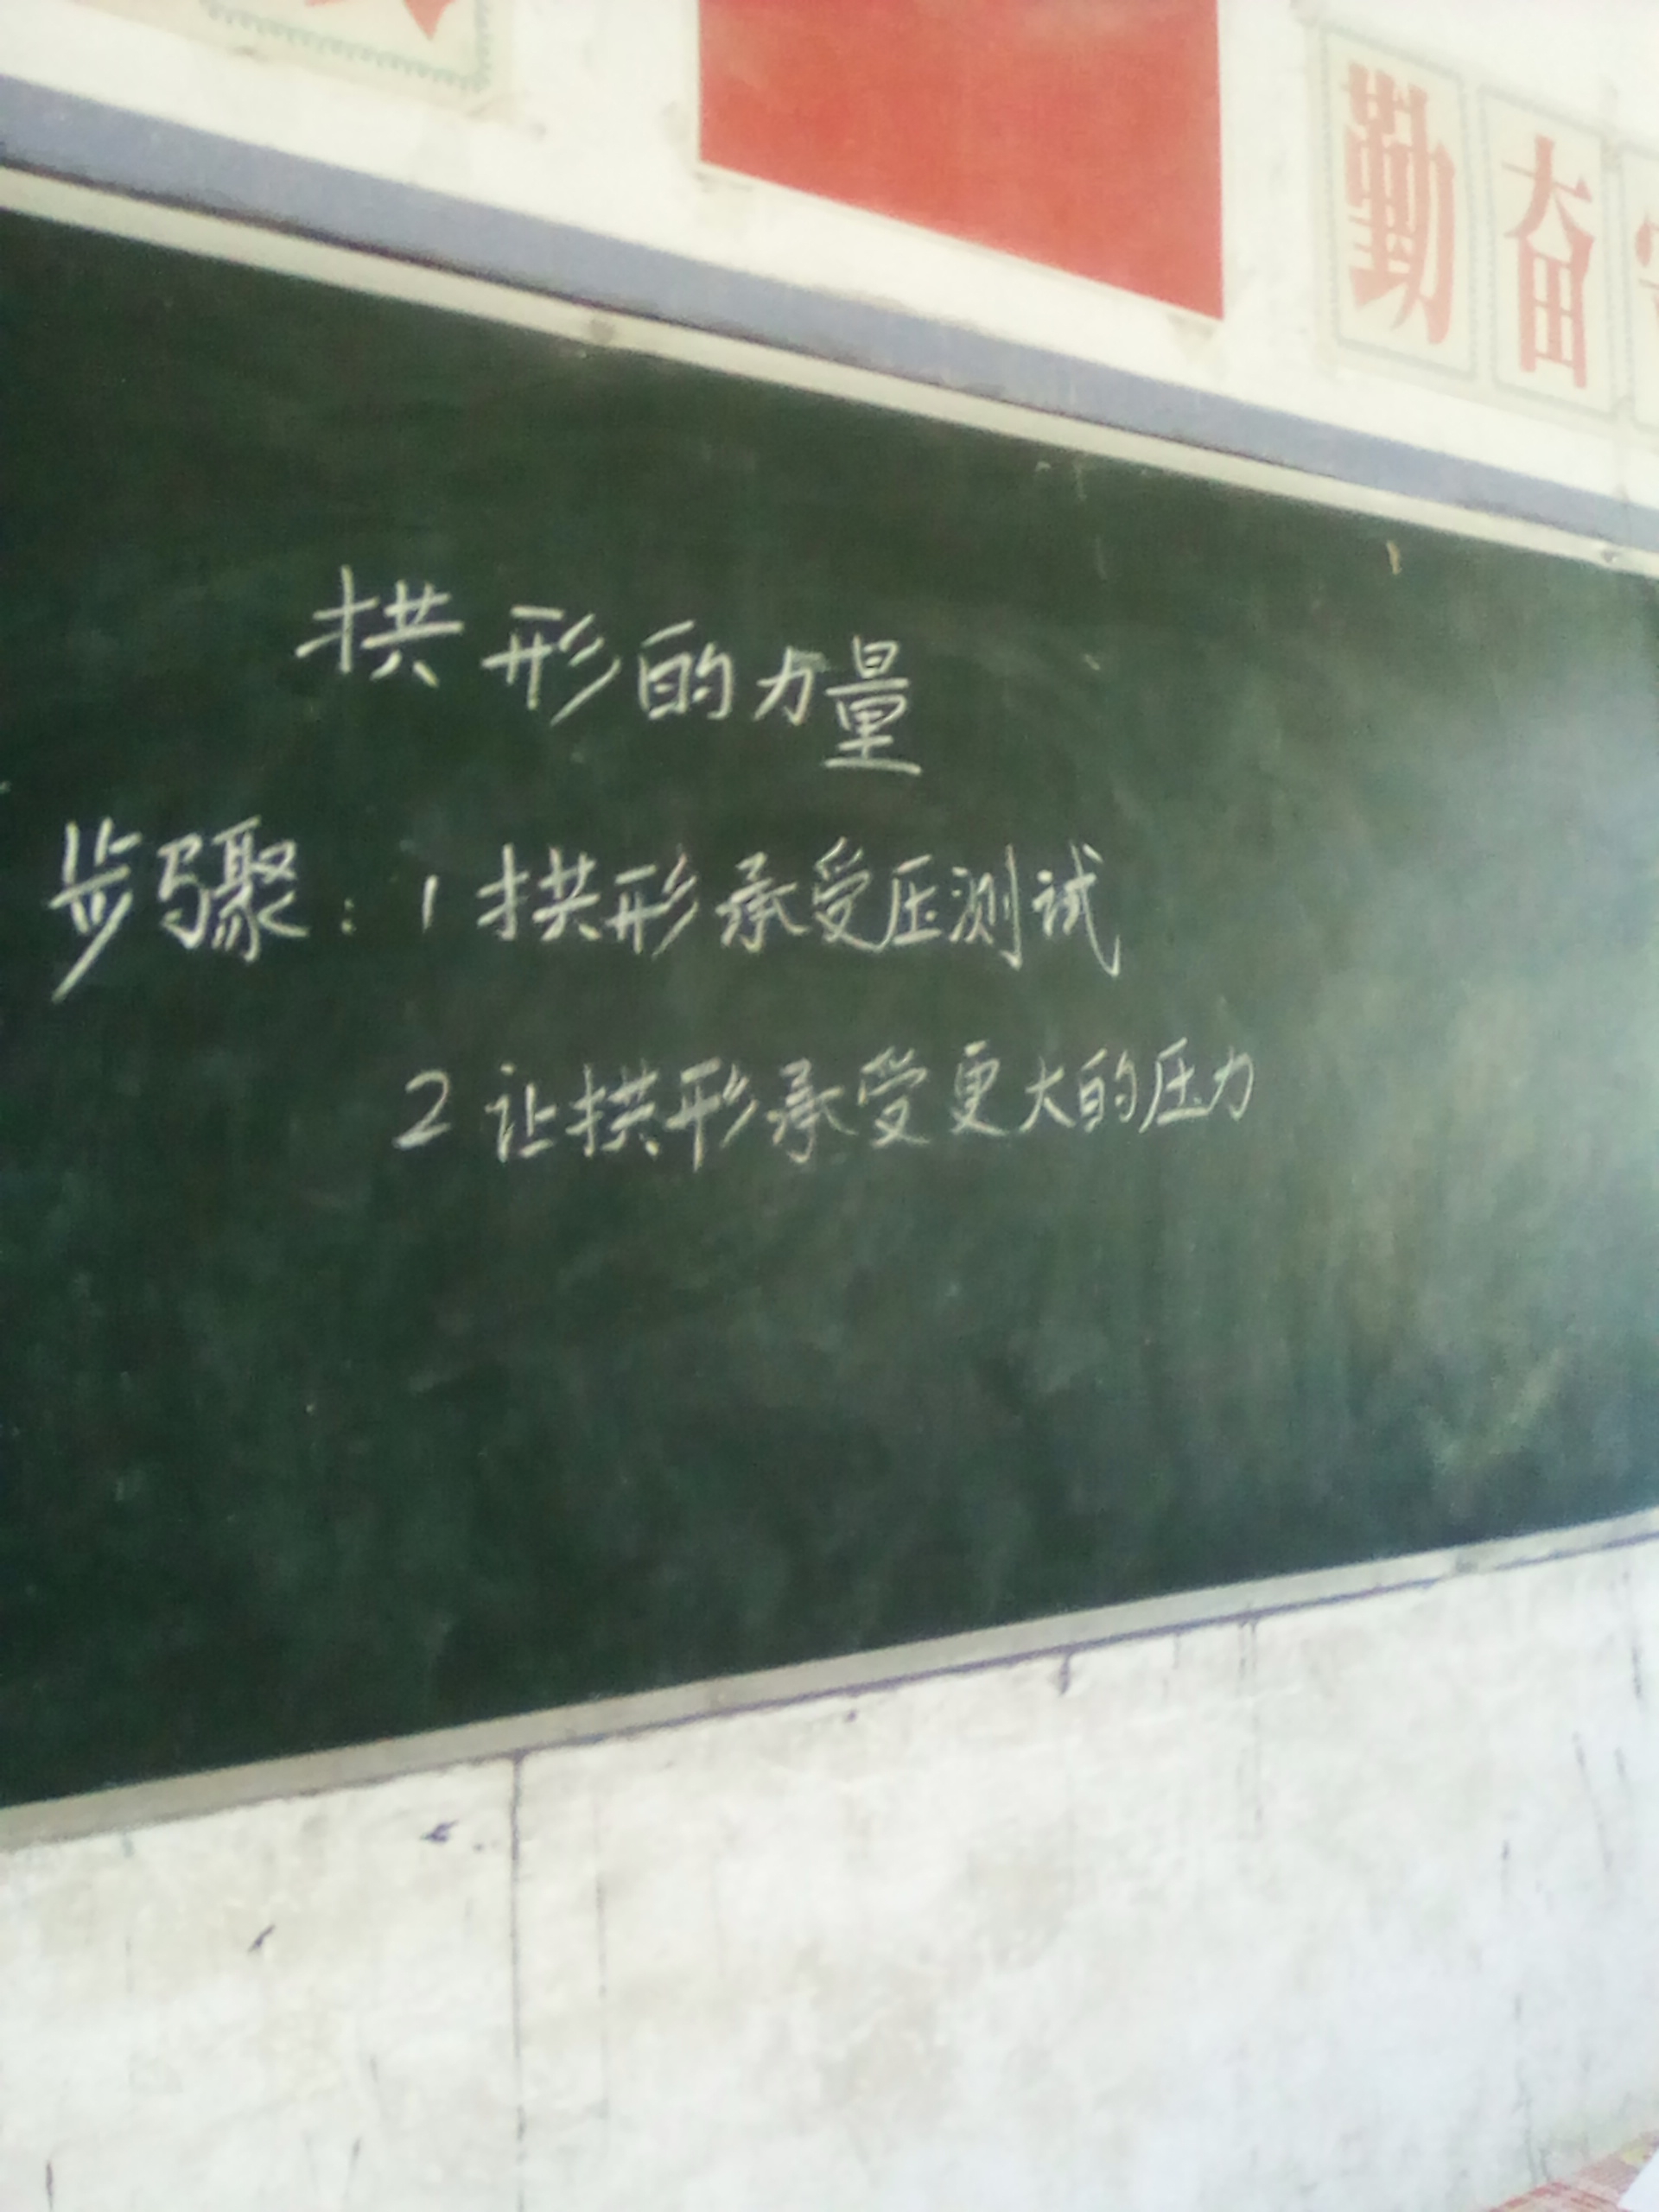 勤奋
拱形的力量
步骤：1 拱形承受压测试
2 让拱形承受更大的压力